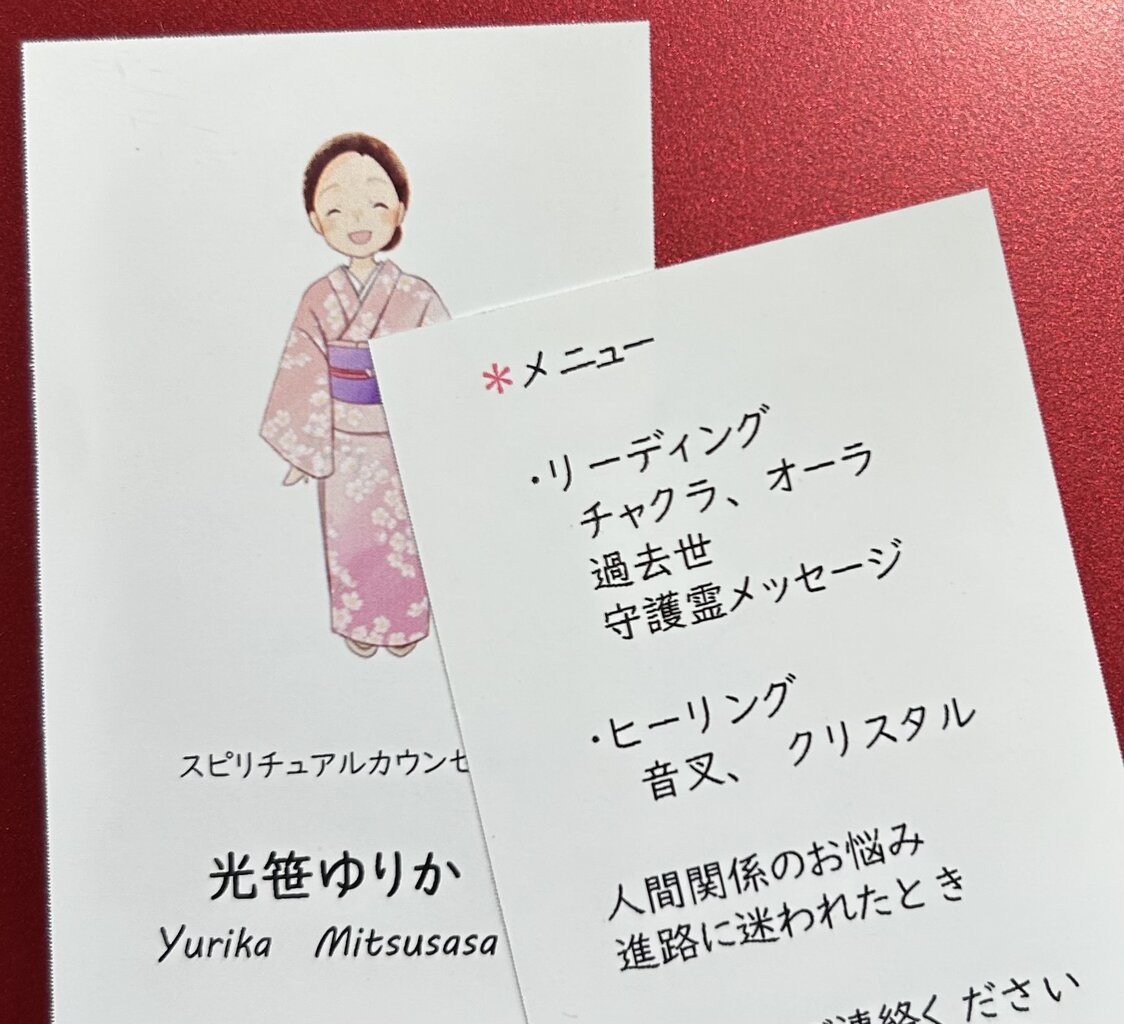 スピリチュアルカウンセ
光笹ゆりか
Yurika Mitsusasa
*メニュー
・リーディング
チャクラ、オーラ
過去世
守護霊メッセージ
・ヒーリング
音叉、クリスタル
人間関係のお悩み
進路に迷われたとき
ご連絡ください